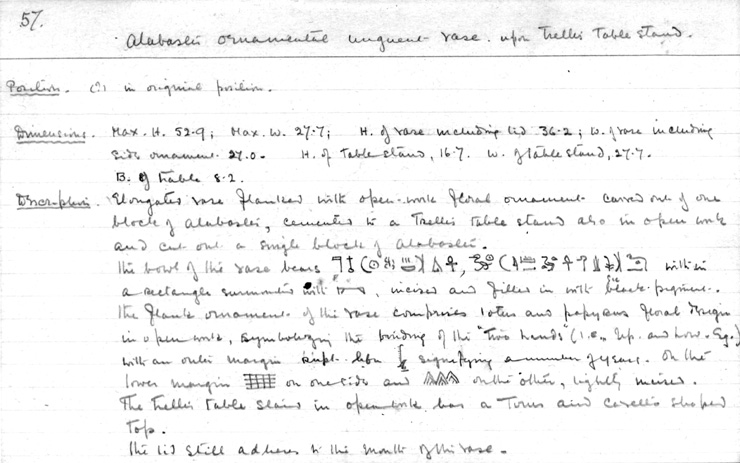 57.
Alabaster ornamental unguent-vase. upon Trellis Table stand.
Position. (?) in original position.
Dimensions. Max. H. 52.9; Max. W. 27.7; H. of vase including lid 36.2; W. of vase including
side ornament. 27.0. H. of table stand, 16.7. W. of table stand, 27.7.
B. of table 8.2.
Description. Elongated vase flanked with open-work floral ornament carved out of one
block of alabaster, cemented to a Trellis table stand also in open work
and cut out a single block of alabaster.
The bowl of the vase bears within
a rectangle surmounted with , incised and filled in with black pigment.
The flank ornament of the vase comprises lotus and papyrus floral design
in open work, symbolizing the binding of the "Two Lands" (i.e., Up. and Low. Eg.)
with an outer margin signifying a number of years. On the
lower margin on one side and on the other, lightly incised.
The Trellis table stand in open-work has a Torus and cavetto shaped
top.
The lid still adheres to the mouth of the vase.